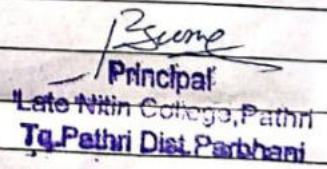 Principal
Late Nitin College, Pathri
Tq. Pathri Dist. Parbhani